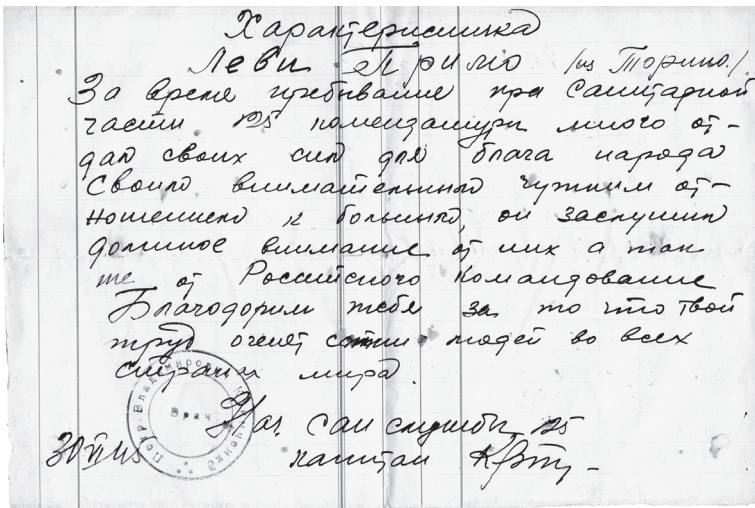 Характеристика
Леви Примо /из Торино./.
За время пребывание при Санитарной
части 125 комендатуры много от-
дал своих сил для блага народа
Своим внимательным чутким от-
ношением к больным, он заслужил
должное внимание от них а так
же от Российского командование
Благодорим тебя за то что твой
труд оченят сотни людей во всех
странах мира.
Нач. сан службы 125
30 VI 45 капитан
Петр Владимирович
Врач